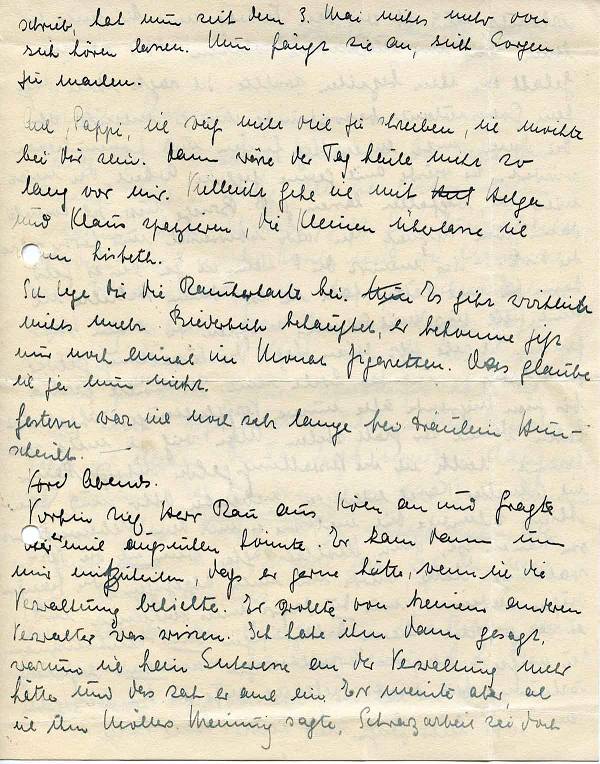 schrieb, hat nun seit dem 3. Mai nichts mehr von
sich hören lassen. Nun fängt sie an, sich Sorgen
zu machen.
Ach, Pappi, ich weiß nicht viel zu schreiben, ich möchte
bei Dir sein. Dann wäre der Tag heute nicht so
lang vor mir. Vielleicht gehe ich mit Helga
und Klaus spazieren, die Kleinen überlasse ich
Lisbeth.
Ich lege Dir die Raucherkarte bei. Es gibt wirklich
nichts mehr. Friederich behauptet, er bekomme jetzt
nur noch einmal im Monat Zigaretten. Das glaube
ich ja nun nicht.
Gestern war ich noch sehr lange bei Fräulein Hun-
scheidt.
Abends.
Vorhin rief Herr Rau aus an und fragte
er mich aufsuchen könnte. Er kam dann um
mir mitzuteilen, daß er gerne hätte, wenn ich die
Verwaltung behielte. Er wollte von keinem anderen
Verwalter was wissen. Ich habe ihm dann gesagt,
warum ich kein Interesse an der Verwaltung mehr
hätte und das sah er auch ein. Er meinte aber, als
ich ihm Meinung sagte, Schwarzarbeit sei doch